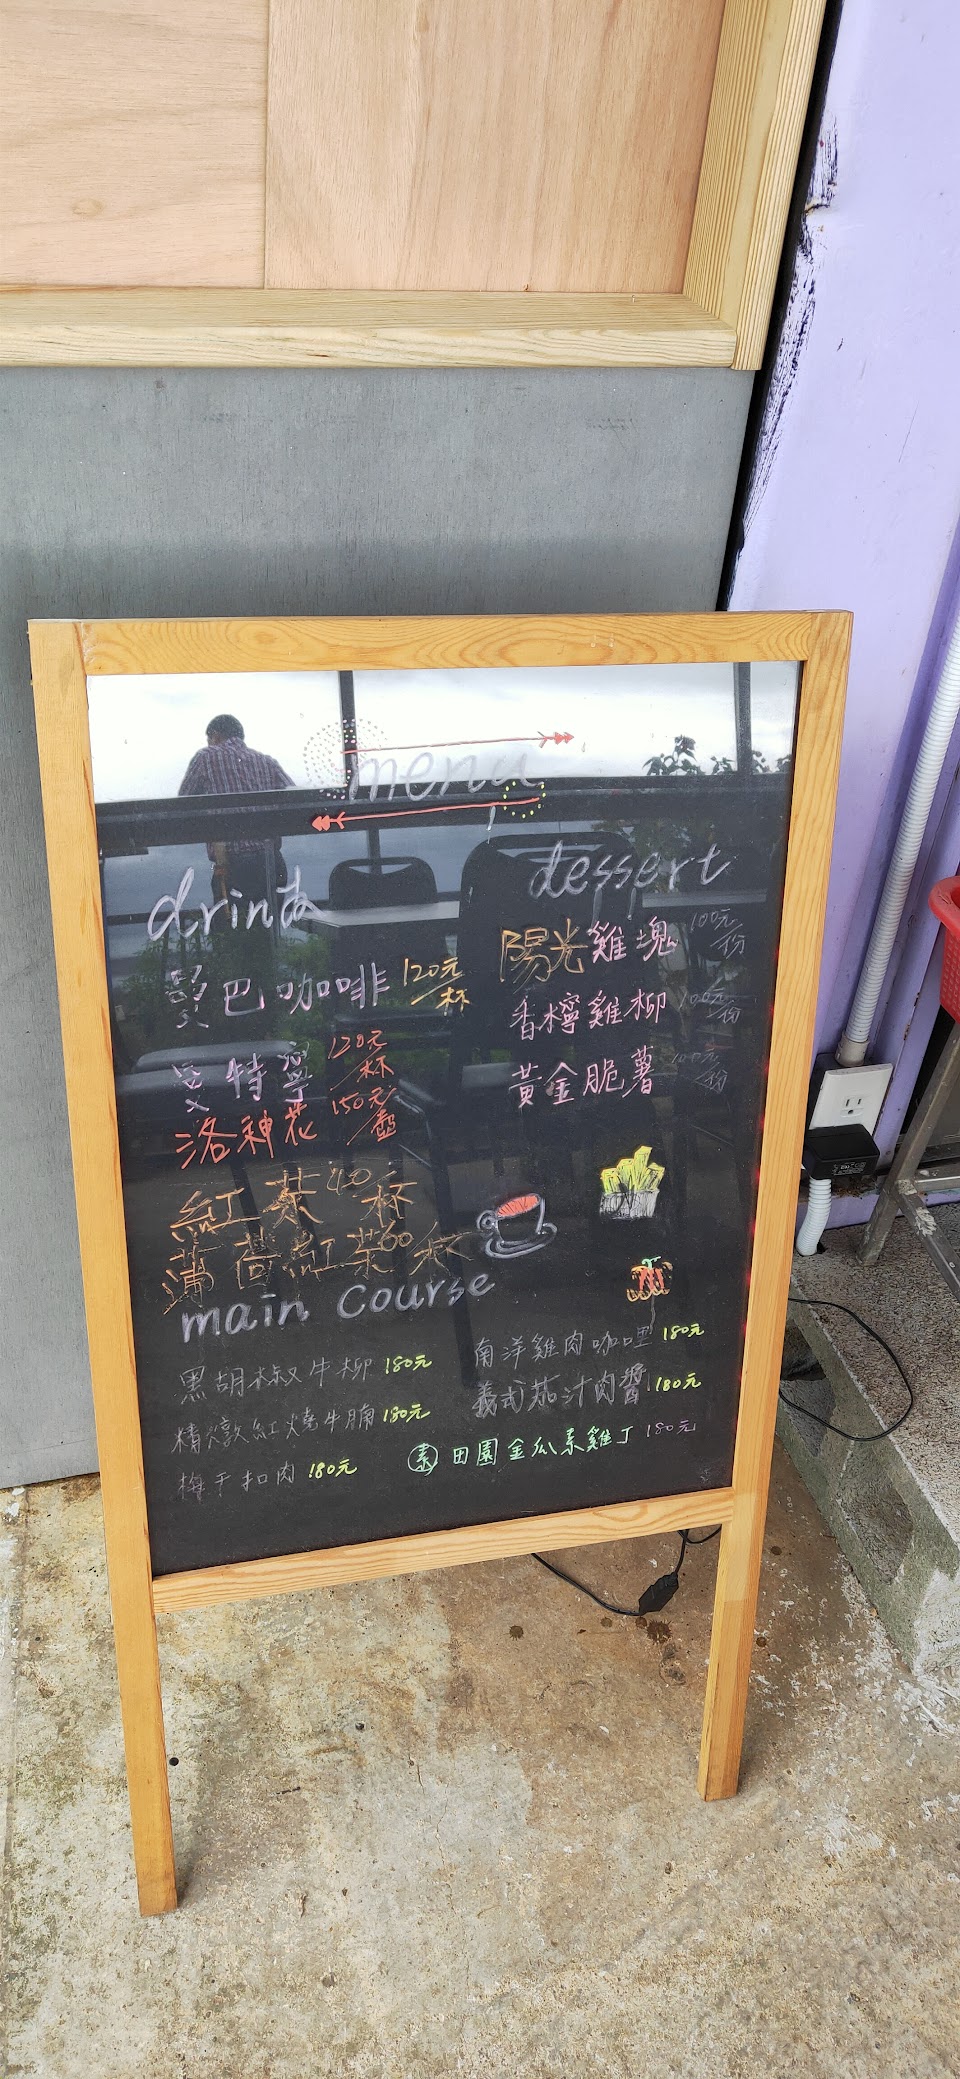 menu
drink
曼巴咖啡 120元/杯
曼特寧 120元/杯
洛神花 150元/壺
紅茶 40杯
薄荷紅茶 60杯
dessert
陽光雞塊 100元/份
香檸雞柳 100元/份
黃金脆薯 100元/份
main course
黑胡椒牛柳 180元
精燉紅燒牛腩 180元
梅干扣肉 180元
南洋雞肉咖哩 180元
義式茄汁肉醬 180元
素 田園金瓜素雞丁 180元